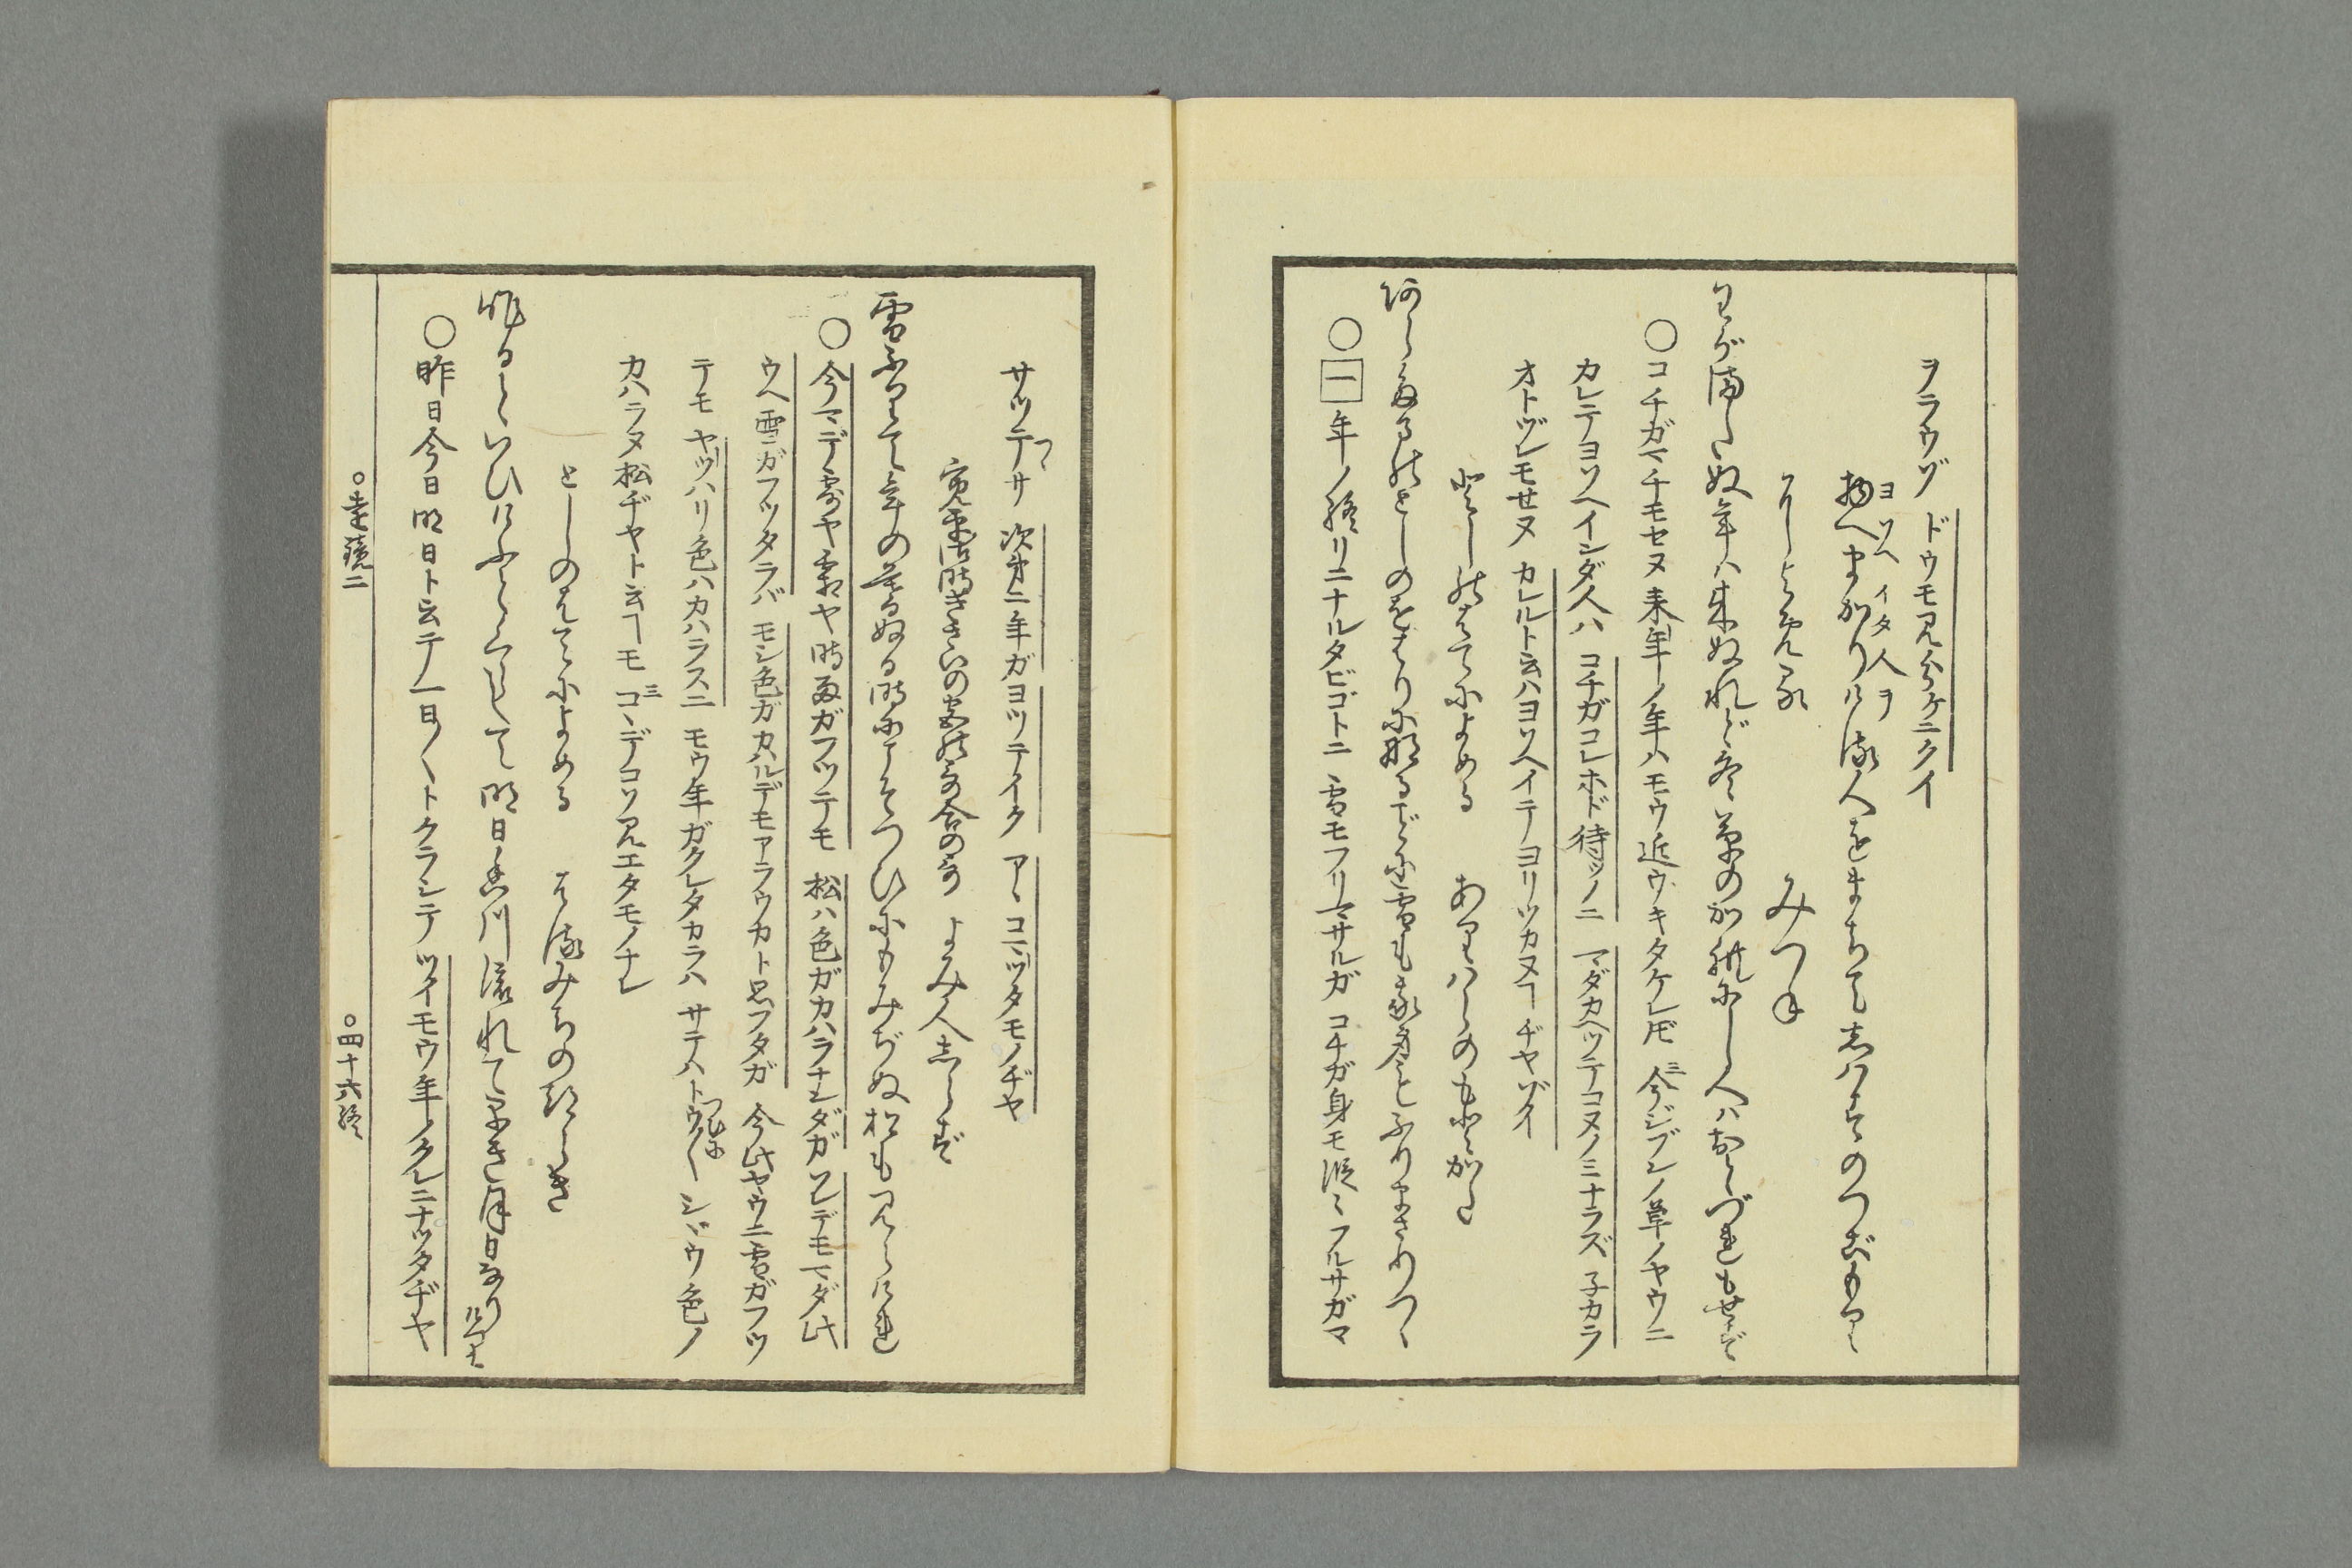 ヲラウゾ ドウモ見分ケニクイ
物へまかりける人をまちてしはすのつごもりに
ヨソヘイタ人ヲ
よめる
みつね
わがまたぬ年は来ぬれど冬草のかれにし人はおとづれもせず
○コチガマチモセヌ来年ノ年ハモウ近ウキタケレドモ 今ジブンノ草ノヤウニ
カレテヨソヘインダ人ハ コチガコレホド待ツノニ マダカヘツテコヌノミナラズ 子カラ
オトヅレモセヌ カレルト云ハヨソヘイテヨリツカヌヿヂヤゾイ
としのはてによめる
あらたまのとしのをはりになるごとに雪もわが身もふりまさりつゝ
○一年ノ終リニナルタビゴトニ 雪モフリマサルガ コチガ身モ段〻フルサガマ
サツテサ 次第ニ年ガヨツテイク アヽコマツタモノヂヤ
つゝ
寛平御時きさいの宮の歌合の歌 よみ人しらず
雪ふりて年のくれぬる時にこそつひにもみぢぬ松も見えけれ
○今マデ露ヤ霜ヤ時雨ガフツテモ 松ハ色ガカハラナンダガ ソレデモマダ此
ウヘ雪ガフツタラバ モシ色ガカハルデモアラウカト思フタガ 今此ヤウニ雪ガフツ
テモ ヤツハリ色ハカハラスニ モウ年ガクレタカラハ サテハトウ〳〵シヾウ色ノ
つひに
カハラヌ松ヂヤト云ヿモ コヽデコソ見エタモノナレ
としのはてによめる はるみちのつらき
昨日といひけふとくらして明日香川流れて早き月日なりけり
○昨日今日明日ト云テ一日〳〵トクラシテ ツイモウ年ノクレニナツタヂヤ
○遠鏡二
○四十六終